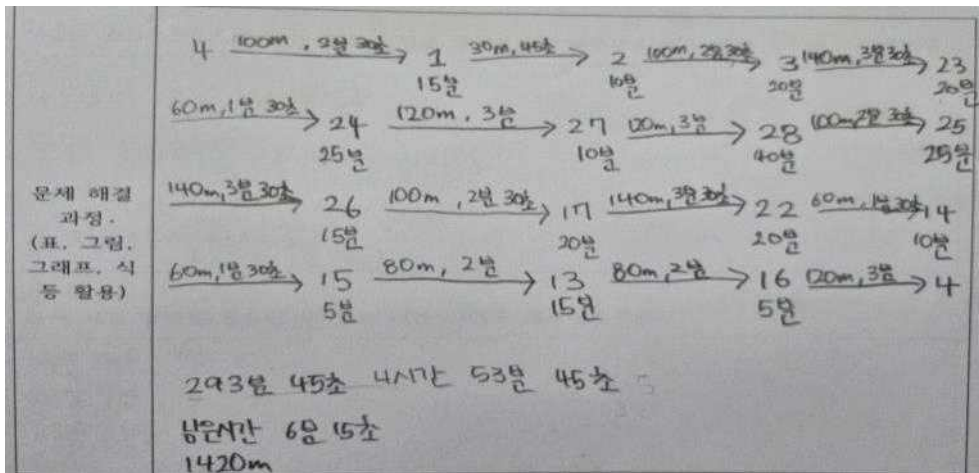 4 100m, 2분 30초 1 30m, 45초 2 100m, 2분 30초 3 140m, 3분 30초 23
15분 10분 20분 20분
60m, 1분 30초 24 120m, 3분 27 120m, 3분 28 100m, 2분 30초 25
25분 10분 40분 25분
140m, 3분 30초 26 100m, 2분 30초 17 140m, 3분 30초 22 60m, 1분 30초 14
15분 20분 20분 10분
60m, 1분 30초 15 80m, 2분 13 80m, 2분 16 120m, 3분 4
5분 15분 5분
문제 해결
과정.
(표, 그림,
그래프, 식
등 활용)
293분 45초 4시간 53분 45초
남은시간 6분 15초
1420m